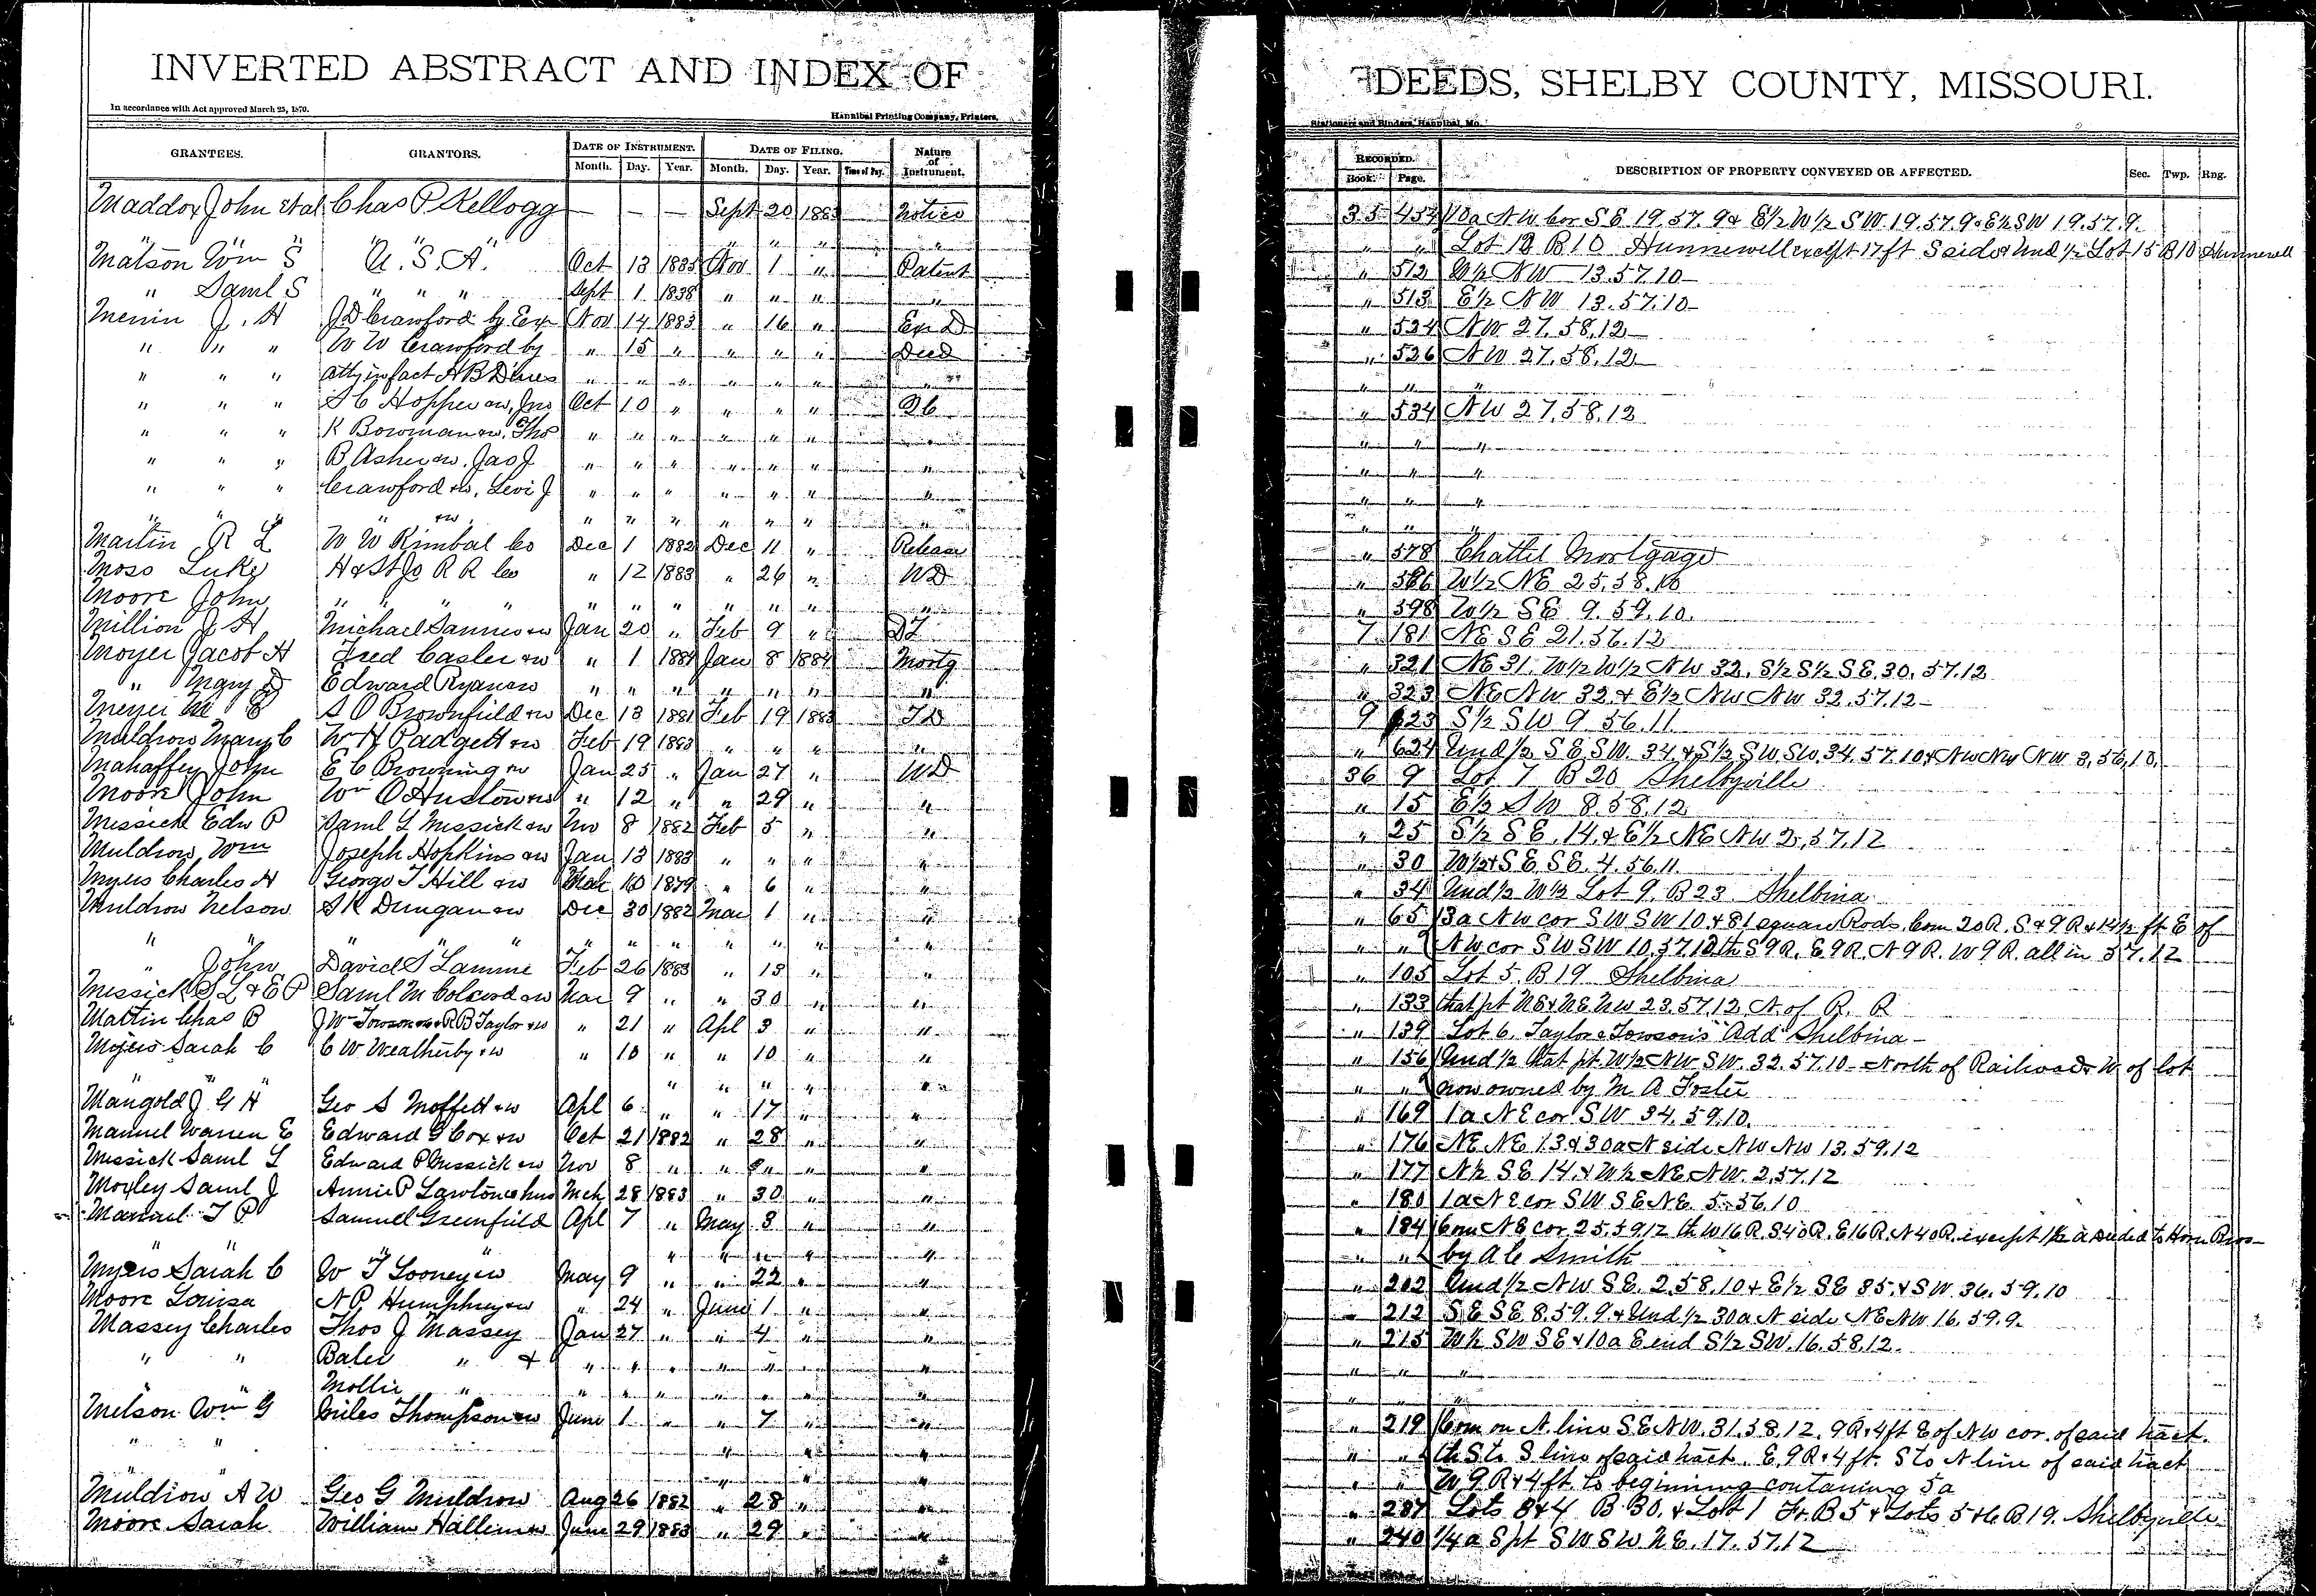 INVERTED ABSTRACT AND INDEX OF DEEDS, SHELBY COUNTY, MISSOURI.
In accordance with Act approved March 25, 1870. Hannibal Printing Company, Printers, Stationers and Binders, Hannibal, Mo.
GRANTEES. GRANTORS. DATE OF INSTRUMENT. Month. Day. Year. DATE OF FILING. Month. Day. Year. Time of Day. Nature of Instrument. RECORDED. Book. Page. DESCRIPTION OF PROPERTY CONVEYED OR AFFECTED. Sec. Twp. Rng.
Maddox John et al Chas P Kellogg — — — Sept 20 1883 Notice 35 454 10a NW cor SE 19.57.9 & E½ W½ SW 19.57.9 & E½ SW 19.57.9.
" " " " " " " " " " Lot 12 B10 Hunnewell except 17ft S side & Und ½ Lot 15 B10 Hunnewell
Matson Wm S U.S.A. Oct 13 1835 Nov 1 " Patent " 512 W½ NW 13.57.10
" Saml S " " " Sept 1 1838 " " " " " 513 E½ NW 13.57.10
J. H J D Crawford by Exr Nov 14 1883 " 16 " Ex D " 524 NW 27.58.12
" " " W W Crawford by " 15 " " " " Deed " 526 NW 27.58.12
" " " atty in fact A B " " " " " " " " " "
" " " S C Hopper &w, Jno Oct 10 " " " " " 534 NW 27.58.12
" " " K Bowman &w, Tho " " " " " " " " " "
" " " B Asher &w, Jas J " " " " " " " " " "
" " " Crawford &w, Levi J " " " " " " " " " "
" " " " &w " " " " " " " " " "
Martin R L W W Kimbal Co Dec 1 1882 Dec 11 " Release " 578 Chattel Mortgage
Moss Luke H & St Jo R R Co " 12 1883 " 26 " WD " 586 W½ NE 25.58.
Moore John " " " " " " " " " " " " 598 W½ SE 9.59.10.
Million J H Michael &w Jan 20 " Feb 9 " 7 181 NE SE 21.56.12
Moyer Jacob H Fred Casler &w " 1 1884 Jan 8 1884 Mortg " 321 NE 31. W½ W½ NW 32. S½ S½ SE 30.57.12
" Mary Edward Ryan &w " " " " " " " " 323 NE NW 32 & E½ NW NW 32.57.12
Meyer M E S O Brownfield &w Dec 13 1881 Feb 19 1883 TD 9 623 S½ SW 9.56.11
Muldrow Mary C W H Padgett &w Feb 19 1883 " " " " " 624 Und ½ SE SW. 34 & S½ SW SW 34.57.10 & NW NW NW 3.56.10.
Mahaffey John E C Browning &w Jan 25 " Jan 27 " WD 36 9 Lot 7 B 20 Shelbyville
Moore John Wm O Huston &w " 12 " " 29 " " " 15 E½ SW 8.58.12
Messick Edw P Saml L Messick &w Nov 8 1882 Feb 5 " " " 25 S½ SE 14. & E½ NE NW 2.57.12
Muldrow Wm Joseph Hopkins &w Jan 13 1883 " " " " " 30 W½ & SE SE 4.56.11.
Myers Charles H George T Hill &w Mch 10 1879 " 6 " " " 34 Und ½ W½ Lot 9. B23 Shelbina
Muldrow Nelson S K Dungan &w Dec 30 1882 Mar 1 " " " 65 3a NW cor SW SW 10 & 81 square Rods. Com 20R. S & 9 R & 14½ ft E of
" " " " " " " " " " " " " NW cor SW SW 10.57.12 th S 9R. E 9R. N 9R. W 9R. all in 57.12
" John David S Lamme Feb 26 1883 " 13 " " " 105 Lot 5. B19 Shelbina
Messick S L & E P Saml M &w Mar 9 " " 30 " " " 133 that pt NE & NE NW 23.57.12 N of R. R
Martin Chas B J Wm Towson &w & R B Taylor &w " 21 " Apl 3 " " " 139 Lot 6. Taylor & Towson's Add Shelbina
Myers Sarah C C W Weatherby &w " 10 " " 10 " " " 156 Und ½ that pt. W½ NW SW. 32.57.10 — North of Railroad & W of lot
" " " " " " " " " now owned by M A Foster
Mangold J G H Geo S Moffett &w Apl 6 " " 17 " " " 169 1a NE cor SW 34.59.10.
Manuel Warren E Edward G Cox &w Oct 21 1882 " 28 " " " 176 NE NE 13 & 30a N side NW NW 13.59.12
Messick Saml L Edward P Messick &w Nov 8 " " " " " " 177 N½ SE 14. & W½ NE NW. 2.57.12
Moxley Saml J Annie P Lawton & hus Mch 28 1883 " 30 " " " 180 1a NE cor SW SE NE 5.56.10
T P Samuel Greenfield Apl 7 " May 3 " " " 184 Com NE cor 25.59.12 th W 16R. S 40R. E 16R. N 40R. except 1½ a deeded to Horn Bros
" " " " " " " " " " by A C Smith
Myers Sarah C W T Looney &w May 9 " " 22 " " " 202 Und ½ NW SE. 2.58.10 & E½ SE 35. & SW. 36.59.10
Moore Louisa N P Humphrey &w " 24 " June 1 " " " 212 SE SE 8.59.9. & Und ½ 30a N side NE NW 16.59.9.
Massey Charles Thos J Massey Jan 27 " " 4 " " " 215 W½ SW SE & 10a E end S½ SW. 16.58.12.
" " " & " " " " " " " " "
" " Mollie " " " " " " " " " " "
Melson Wm G Miles Thompson &w June 1 " " 7 " " " 219 Com on N. line SE NW. 31.58.12. 9 R & 4ft E of NW cor. of said tract.
" " " " " " " th S to S line of said tract. E. 9R & 4 ft. S to N line of said tract
" " " " " " W 9 R & 4 ft. to beginning contaning 5a
Muldrow A W Geo G Muldrow Aug 26 1882 " 28 " " " 237 Lots 3 & 4 B 30. & Lot 1 Fr. B 5 & Lots 5 & 6 B 19. Shelbyville
Moore Sarah William &w June 29 1883 " 29 " " " 240 ¼ a S pt SW SW NE. 17.57.12